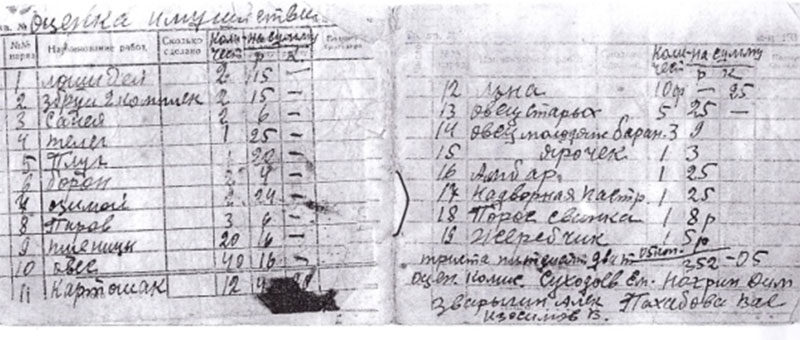 кв. № Оценка имущества
№№ наряд. Наименование работ Сколько сделано Коли- чест на сумму р. к.
1 лошадей 2 15 —
2 2 15 —
3 Саней 2 6 —
4 телег 1 25 —
5 Плуг 1 20 —
6 борон 2 4 —
озимой 2 24 —
8 Паров 3 9 —
9 пшеницы 20 6 —
10 Овес 40 16 —
11 Картошак 12
Коли- чест на сумму р к
12 Льна 10ф — 25
13 Овец старых 5 25 —
14 Овец молодяж баран. 3 9
15 Ярочек 1 3
16 Амбар 1 25
17 Надворная пастр. 1 25
18 Порос свинка 1 8р
19 Жеребчик 1 5р
триста пятьдесят два р 05 коп. 352-05
оцен. комис. Суходоев Ем. Нахрин
Зварыгин Алек Пахабова Вас
Изосимов В.